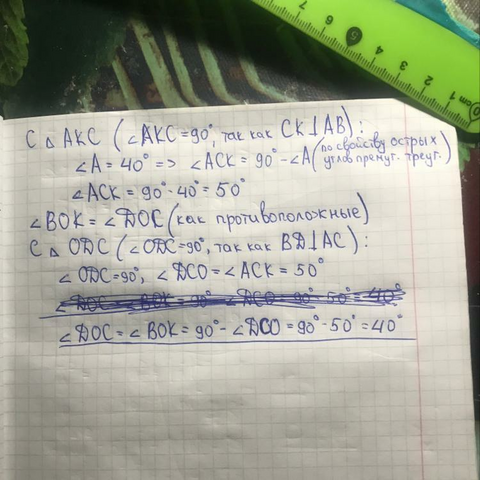 С △ AKC (∠AKC = 90°, так как CK⊥AB):
∠A = 40° => ∠ACK = 90° - ∠A (по свойству острых углов прямуг. треуг.)
∠ACK = 90° - 40° = 50°
∠BOK = ∠DOC (как противоположные)
С △ ODC (∠ODC = 90°, так как BD⊥AC):
∠ODC = 90°, ∠DCO = ∠ACK = 50°
∠DOC = ∠BOK = 90° - ∠DCO = 90° - 50° = 40°
7 6 5 4 3 2 1 0 cm